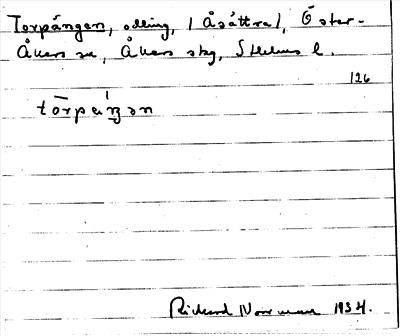 Torpängen, odling, (Åsättra), Öster-
Åkers sn, Åkers skg, Sthlms l.
126
tṑrpæ̀ŋən
Rickard Norrman 1934.